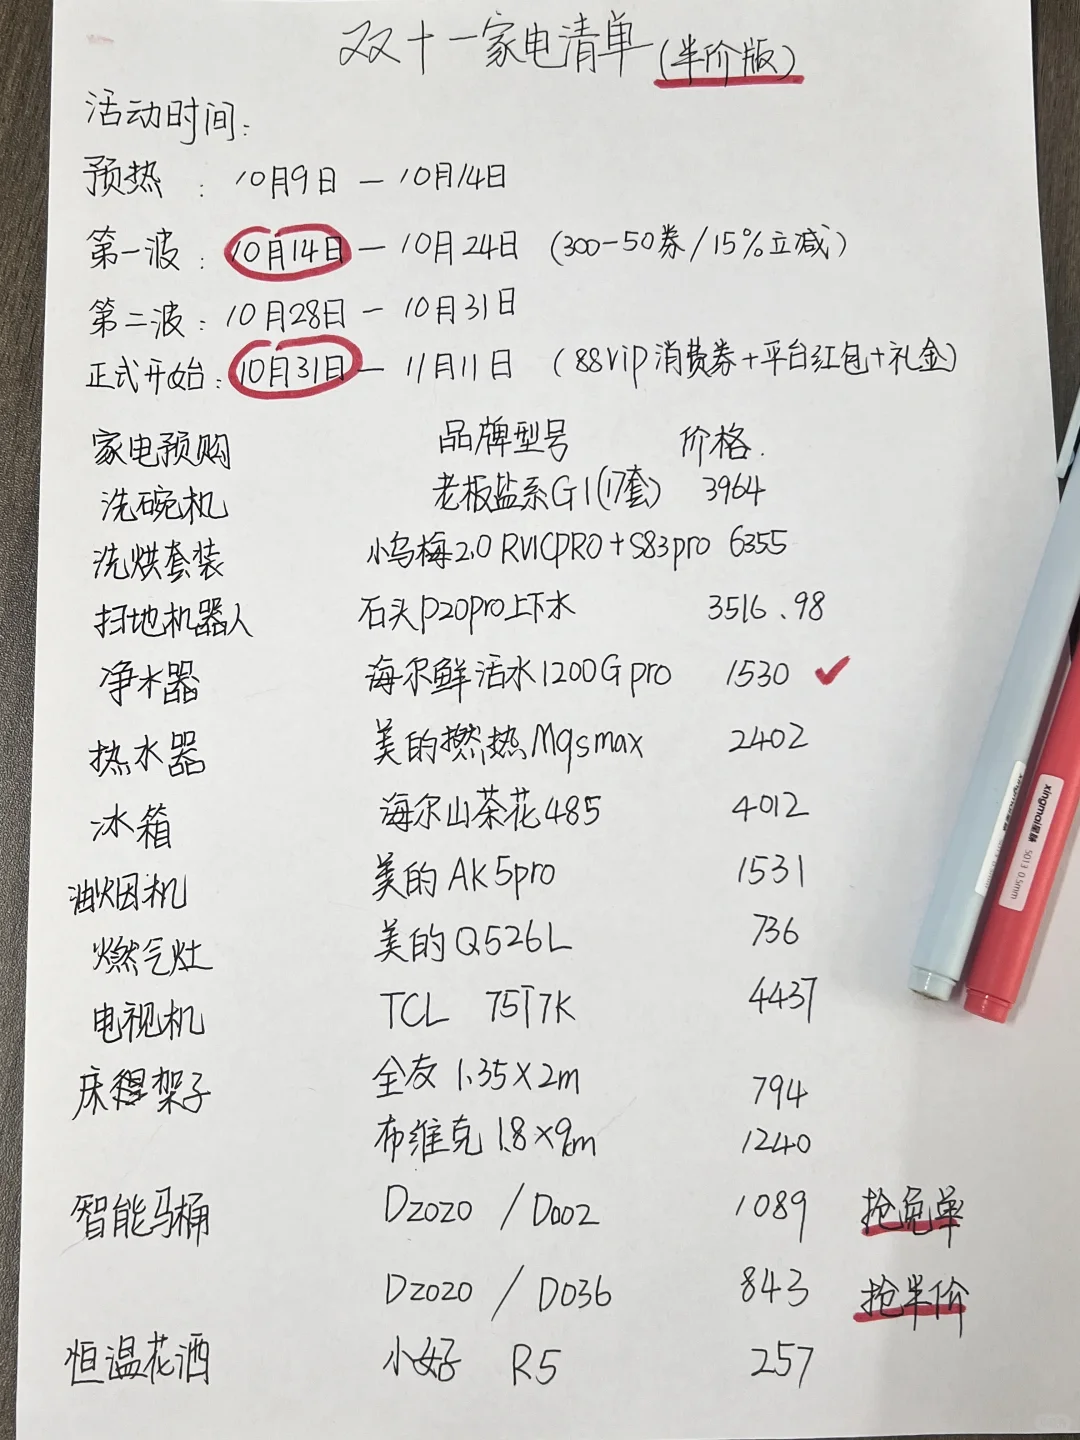 双十一家电清单(半价版)
活动时间:
预热 : 10月9日 — 10月14日
第一波 : 10月14日 — 10月24日 (300-50券/15%立减)
第二波 : 10月28日 — 10月31日
正式开始 : 10月31日 — 11月11日 (88vip消费券+平台红包+礼金)
家电预购 品牌型号 价格.
洗碗机 老板盐系G1(17套) 3964
洗烘套装 小乌梅2.0 RV1CPRO+S83pro 6355
扫地机器人 石头P20pro上下水 3516.98
净水器 海尔鲜活水1200Gpro 1530 ✓
热水器 美的燃热M9smax 2402
冰箱 海尔山茶花485 4012
油烟机 美的AK5pro 1531
燃气灶 美的Q526L 736
电视机 TCL 75T7K 4437
床架子 全友 1.35×2m 794
布维克 1.8×2m 1240
智能马桶 Dz020 / D002 1089 抢免单
Dz020 / D036 843 抢半价
恒温花洒 小好 R5 257
xingmai星脉 5013 0.5mm